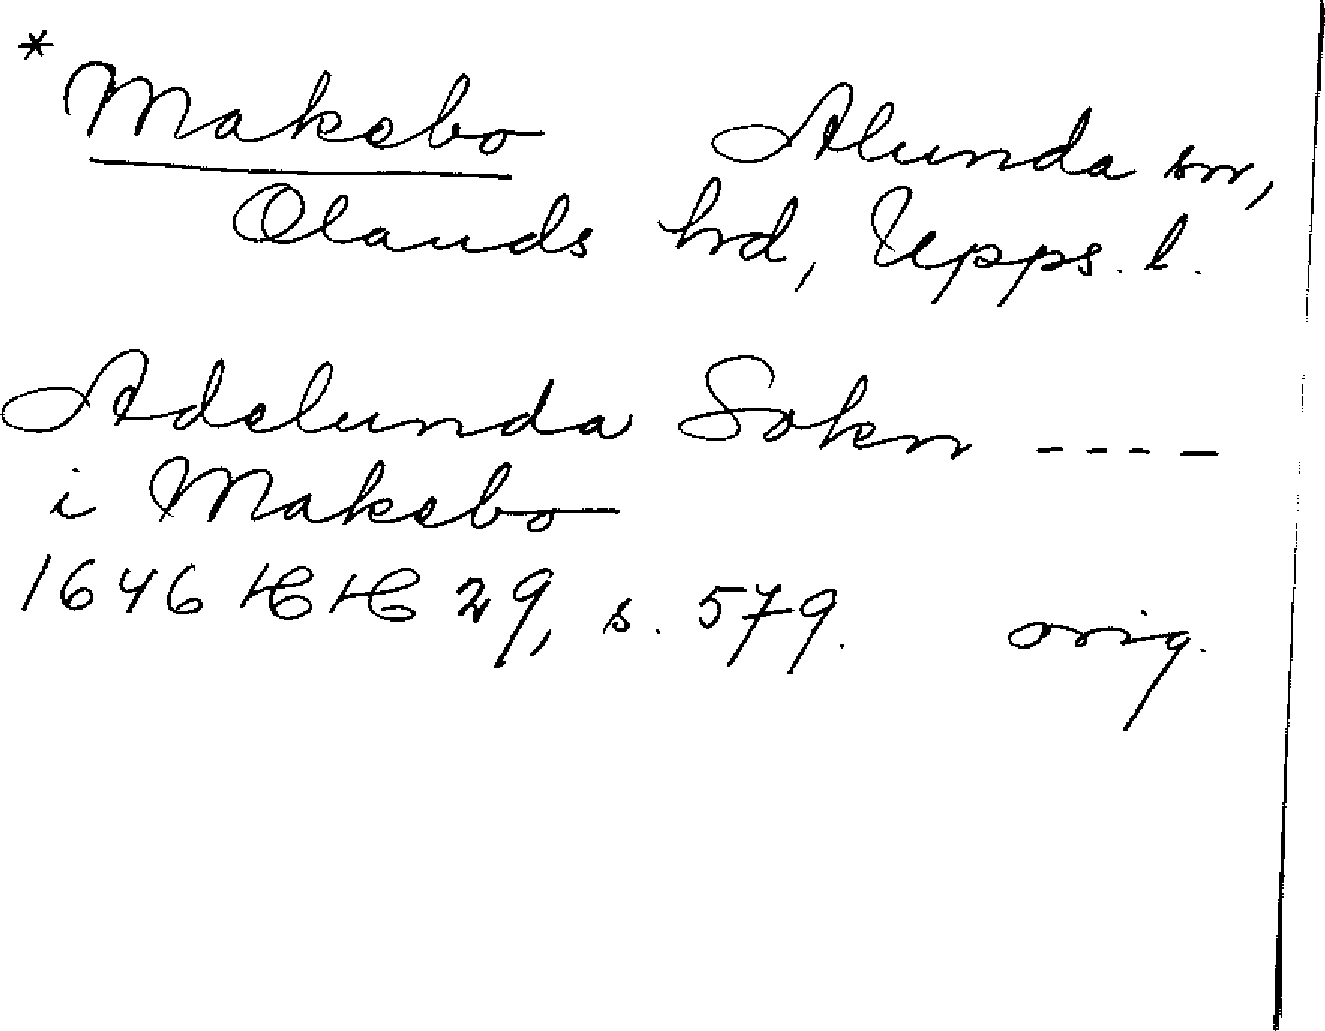 * Makebo Alunda sn,
Olands hrd, Upps. l.
Adelunda Sokn ----
i Makebo
1646 HH 29, s. 579. orig.